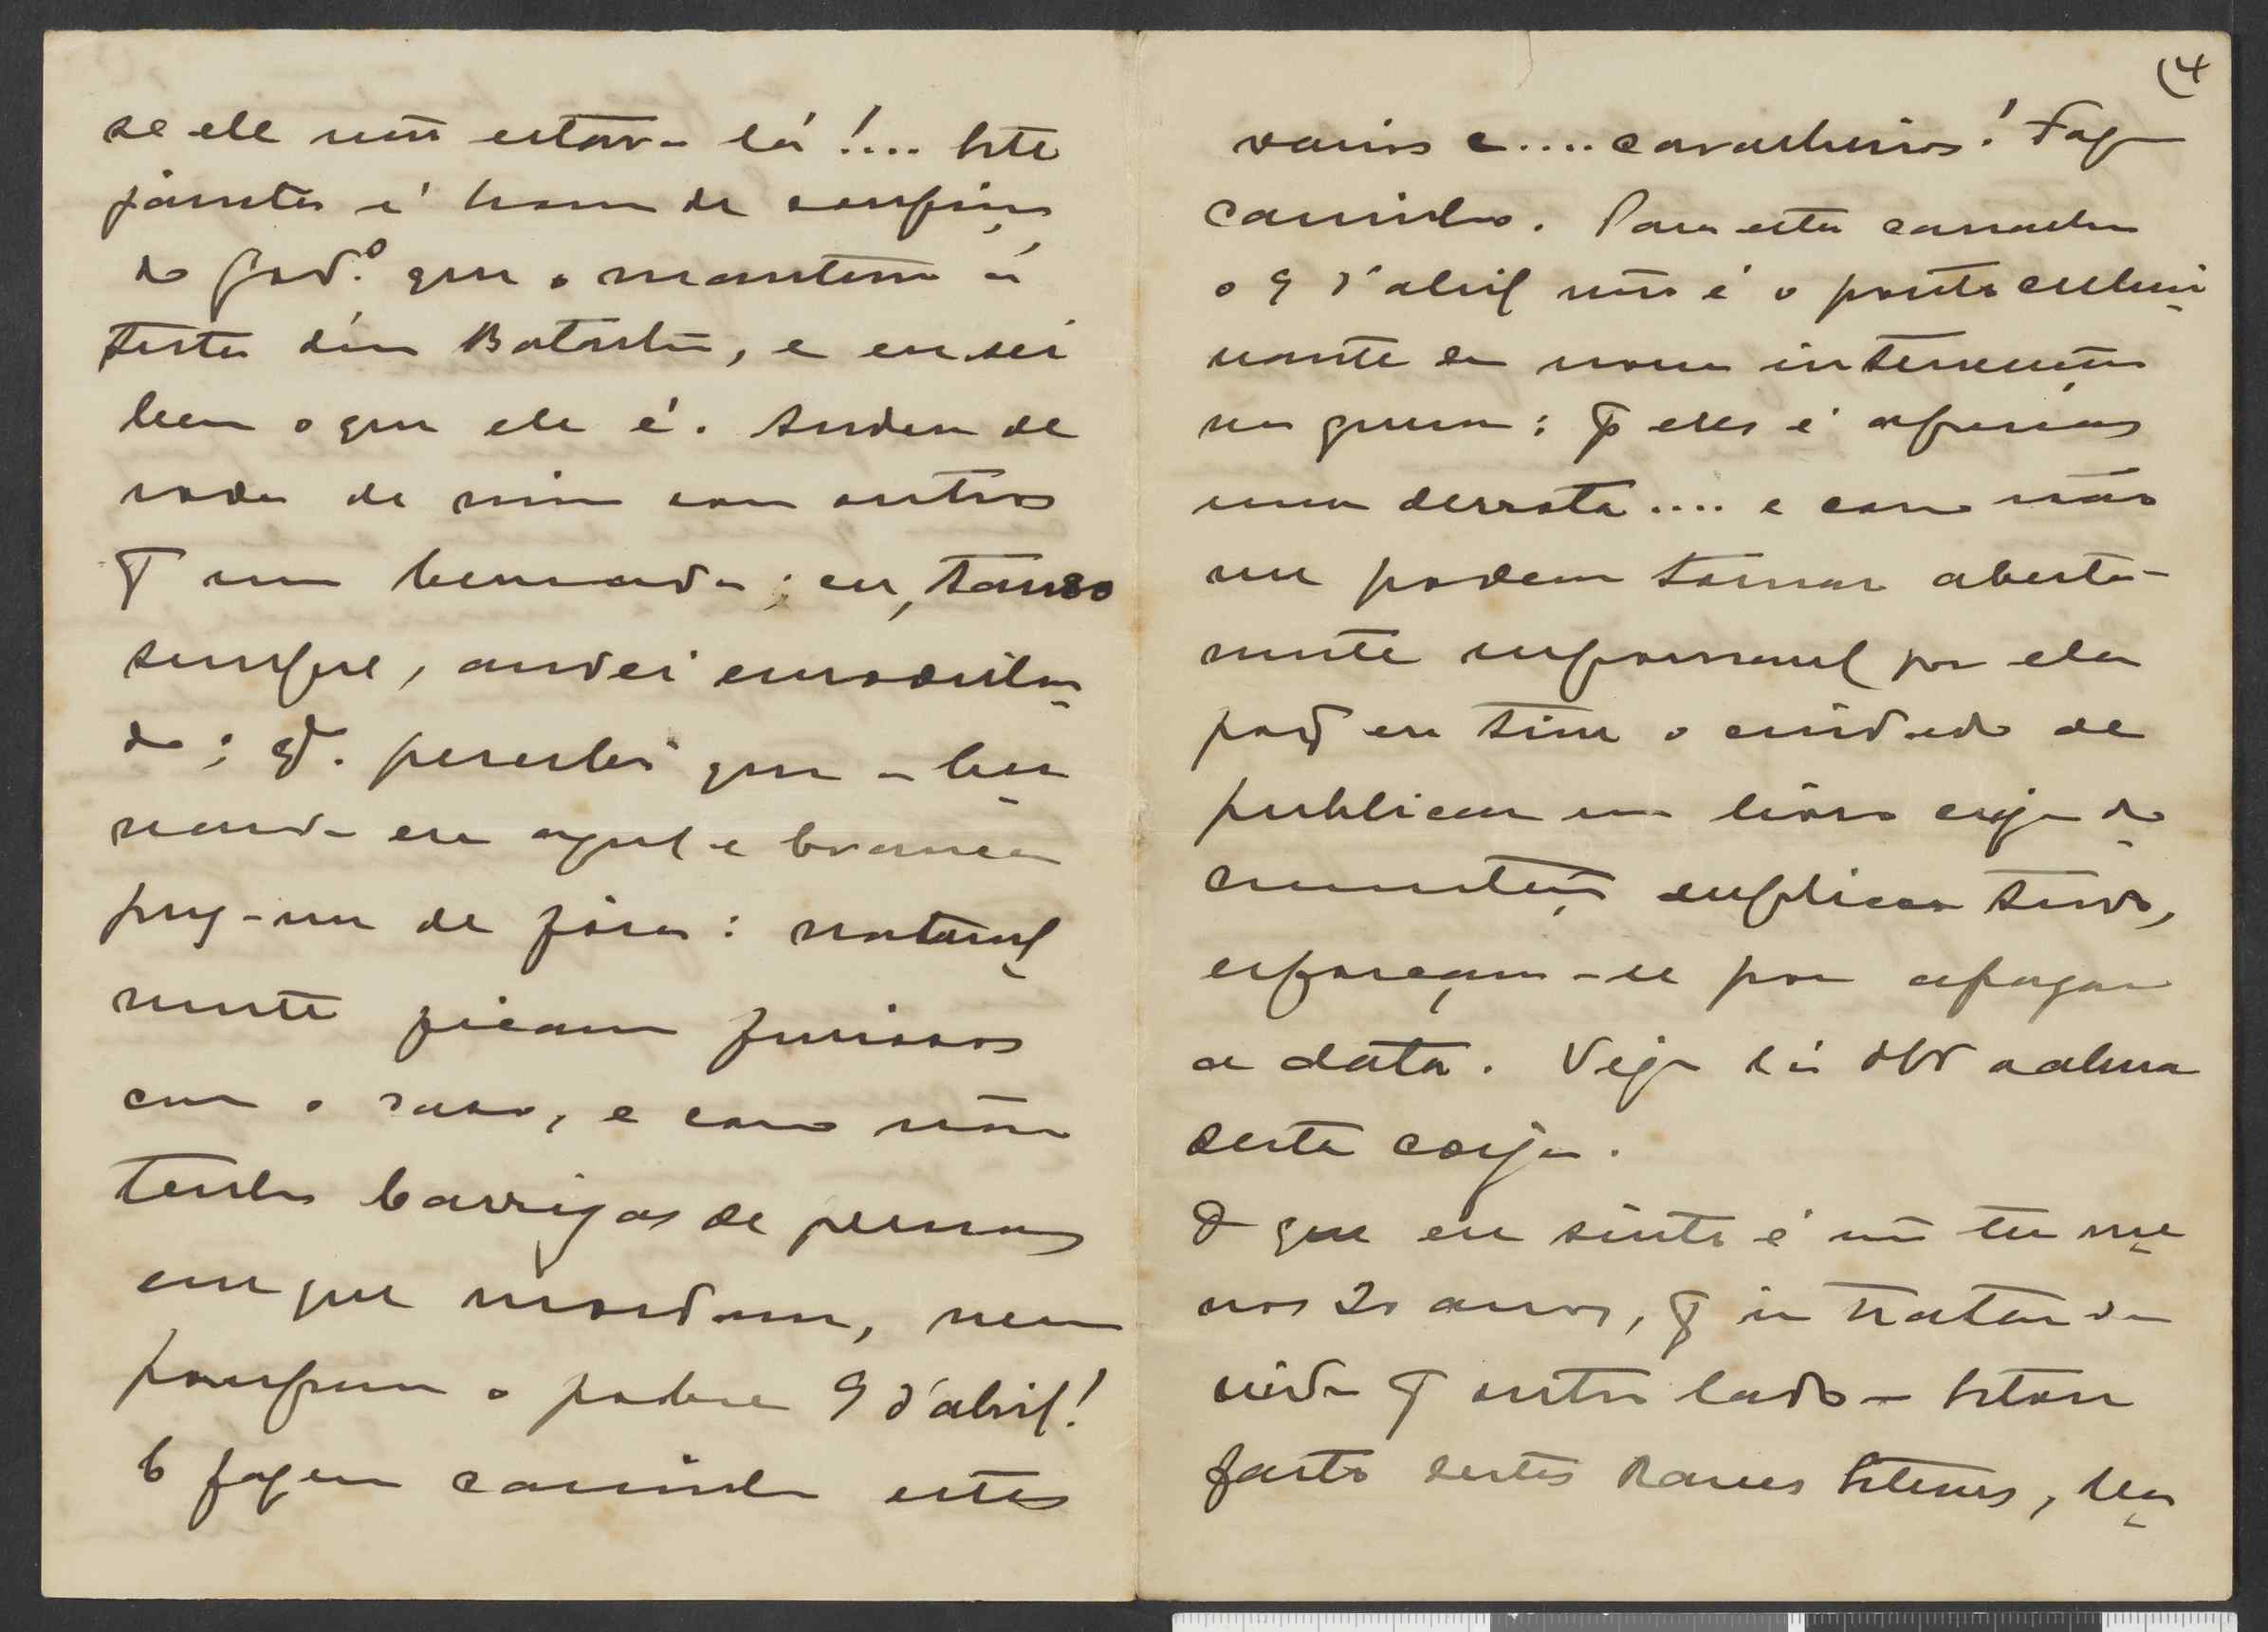 se ele não estava lá!.... Este
janota é homem de confiança
do Gov.º que o mantem á
testa dum Batalhão, e eu sei
bem o que ele é. Andou de
roda de mim com outros
pª uma bernarda; eu, tanso
sempre, andei enrodilha-
do; qdº. percebi que a ber-
narda era azul e branca
puz-me de fóra: natural-
mente ficaram furiosos
com o caso, e como não
tenho barrigas de pernas
em que mordam, nem
poupam o pobre 9 d'abril!
E fazem caminho estes
(4
varios e.... cavalheiros! Faz
caminho. Para esta canalha
o 9 d'abril não é o ponto culmi-
nante da nossa intervenção
na guerra: pª eles é apenas
uma derrota.... e como não
me podem tornar aberta-
mente responsavel por ela
porq eu tive o cuidado de
publicar um livro cuja do-
cumentação explica tudo,
esforçam-se por apagar
a data. Veja lá V a alma
desta corja.
O que eu sinto é não ter me-
nos 20 anos, pª ir tratar da
vida pª outro lado - Estou
farto destes